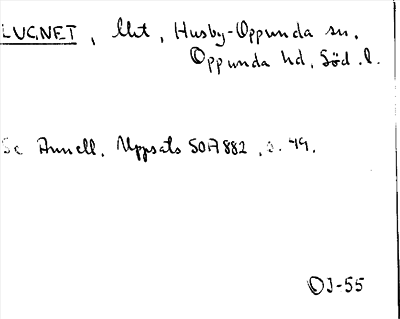 LUGNET, lht, Husby-Oppunda sn,
Oppunda hd, Söd. l.
Se Annell, Uppsats SOFI 882, s. 49.
OJ-55